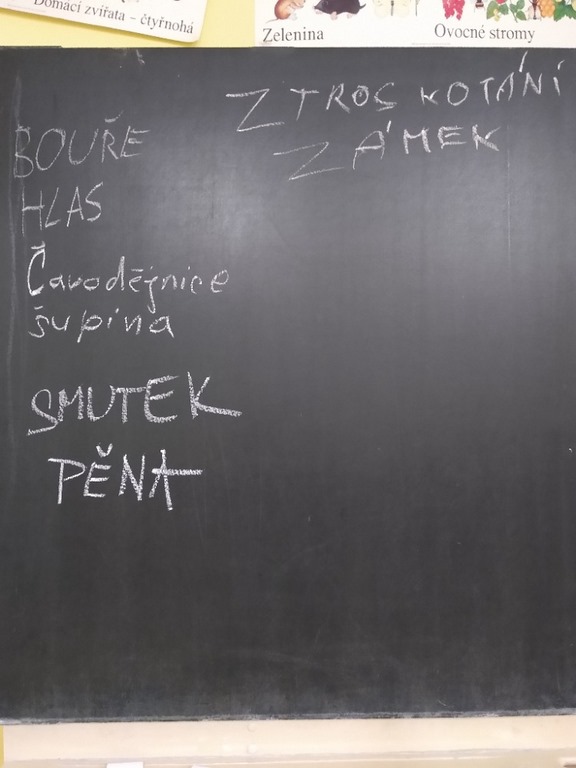 Domácí zvířata – čtyřnohá
Zelenina
Ovocné stromy
ZTROSKOTÁNÍ
ZÁMEK
BOUŘE
HLAS
Čavodějnice
šupina
SMUTEK
PĚNA